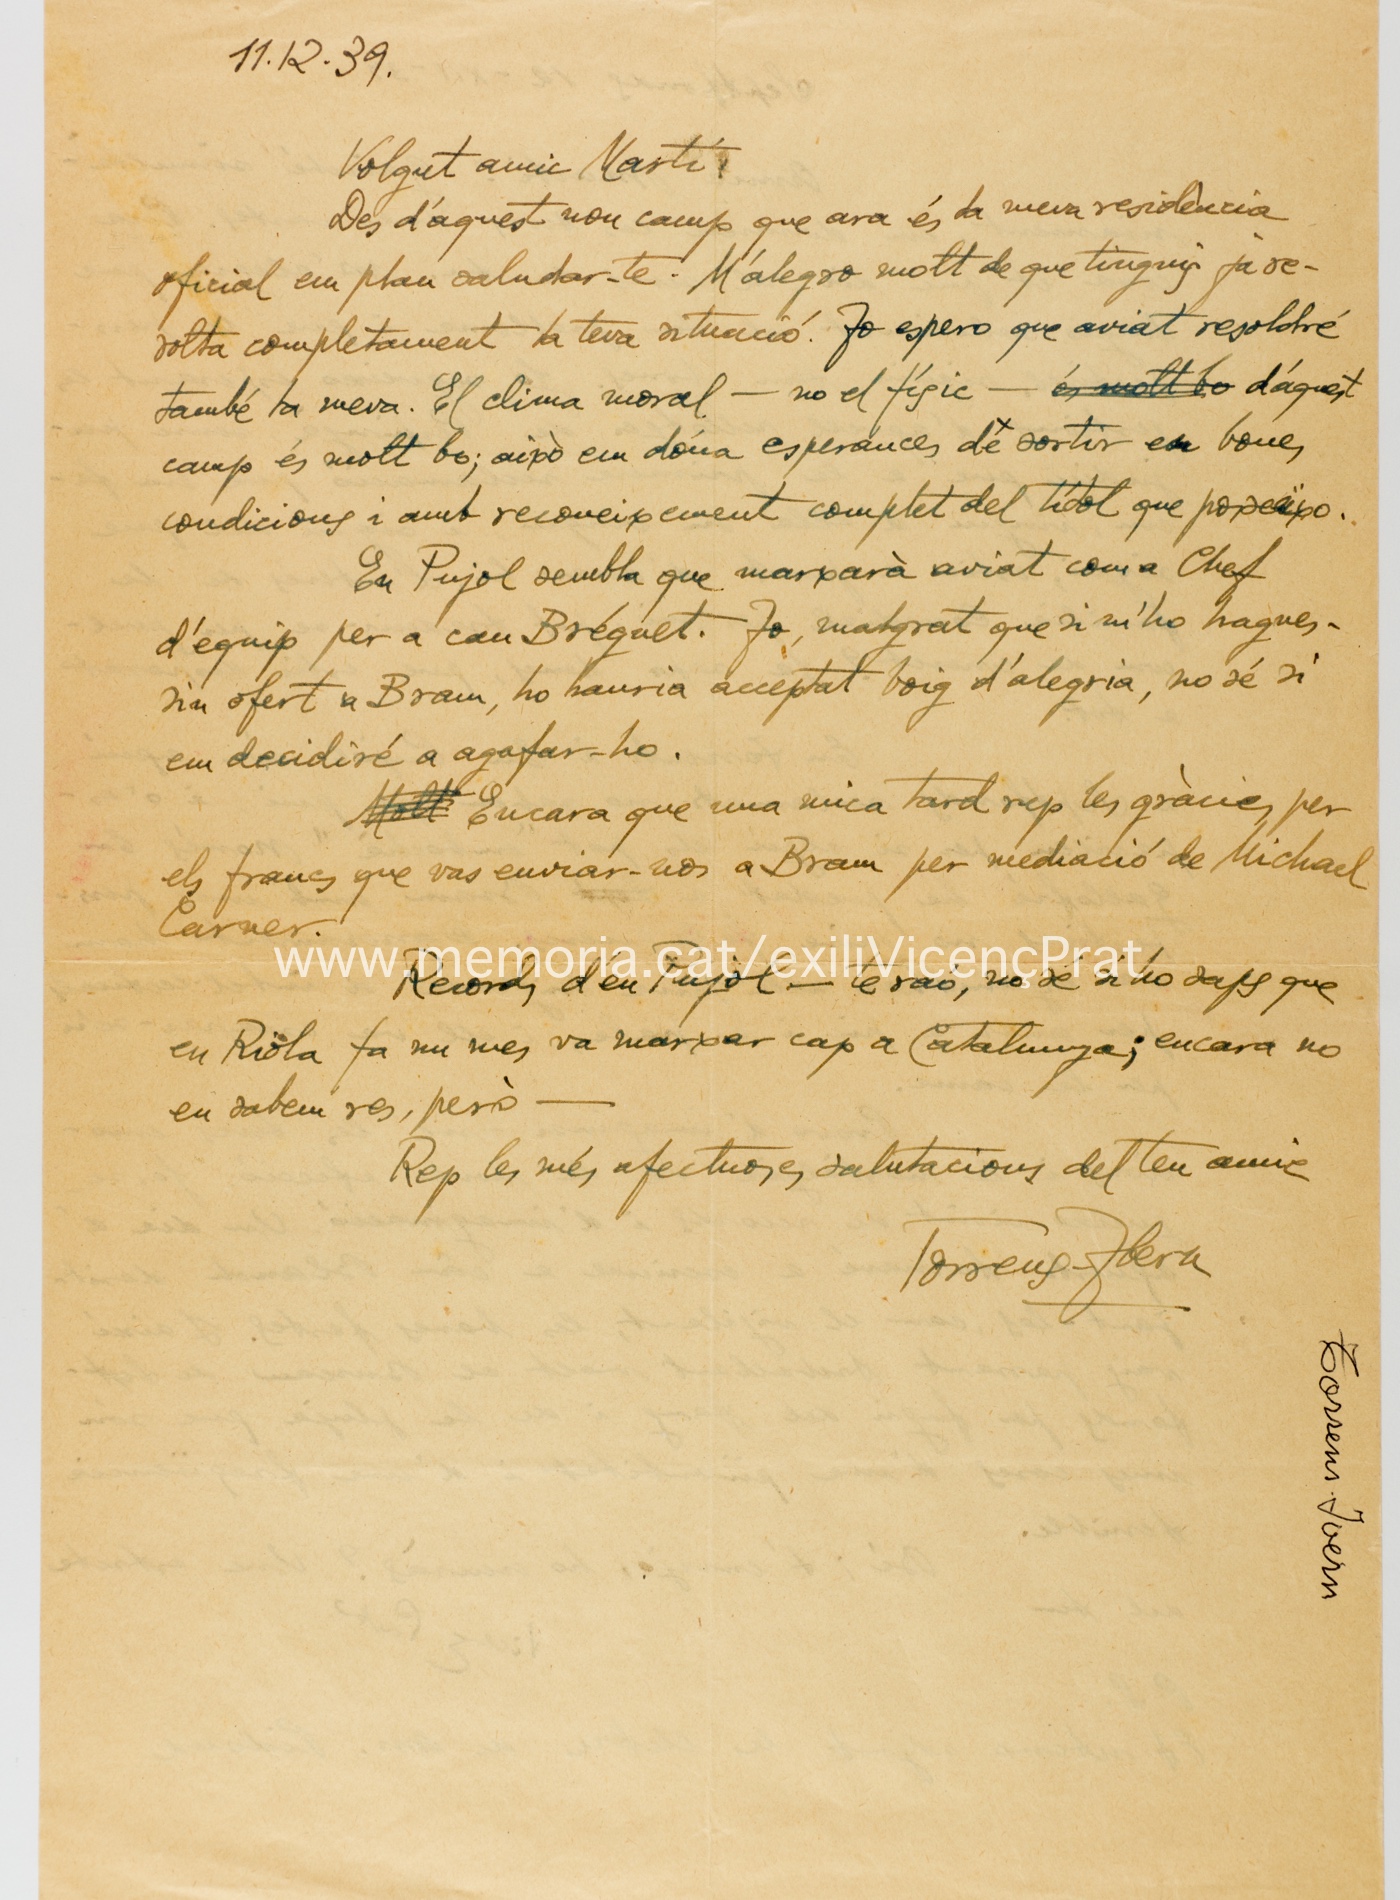 11.12.39.
Volgut amic Martí:
Des d'aquest nou camp que ara és la meva residència
oficial em plau saludar-te. M'alegro molt de que tinguis ja re-
solta completament la teva situació. Jo espero que aviat resoldré
també la meva. El clima moral — no el físic — és molt bo d'aquest
camp és molt bo; això em dóna esperances de sortir en bones
condicions i amb reconeixement complet del títol que posseixo.
En Pujol sembla que marxarà aviat com a Chef
d'equip per a can Bréguet. Jo, malgrat que si m'ho hagues-
sin ofert a Bram, ho hauria acceptat boig d'alegria, no sé si
em decidiré a agafar-ho.
Molt Encara que una mica tard rep les gràcies per
els francs que vas enviar-nos a Bram per mediació de Michael
Carner.
www.memoria.cat/exiliVicencPrat
Records d'en Pujol — te raó, no sé si ho saps que
en Riola fa un mes va marxar cap a Catalunya; encara no
en sabem res, però —
Rep les més afectuoses salutacions del teu amic
Torrens-Ibern
Torrens-Ivern